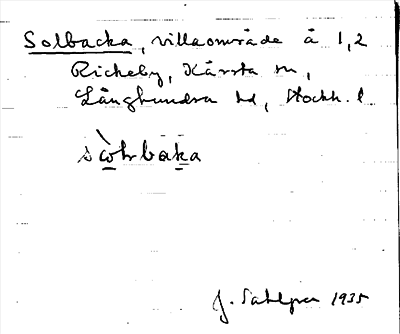 Solbacka, villaområde å 1,2
Rickeby, Kårsta sn,
Långhundra hd, Stockh. l
J. Sahlgren 1935